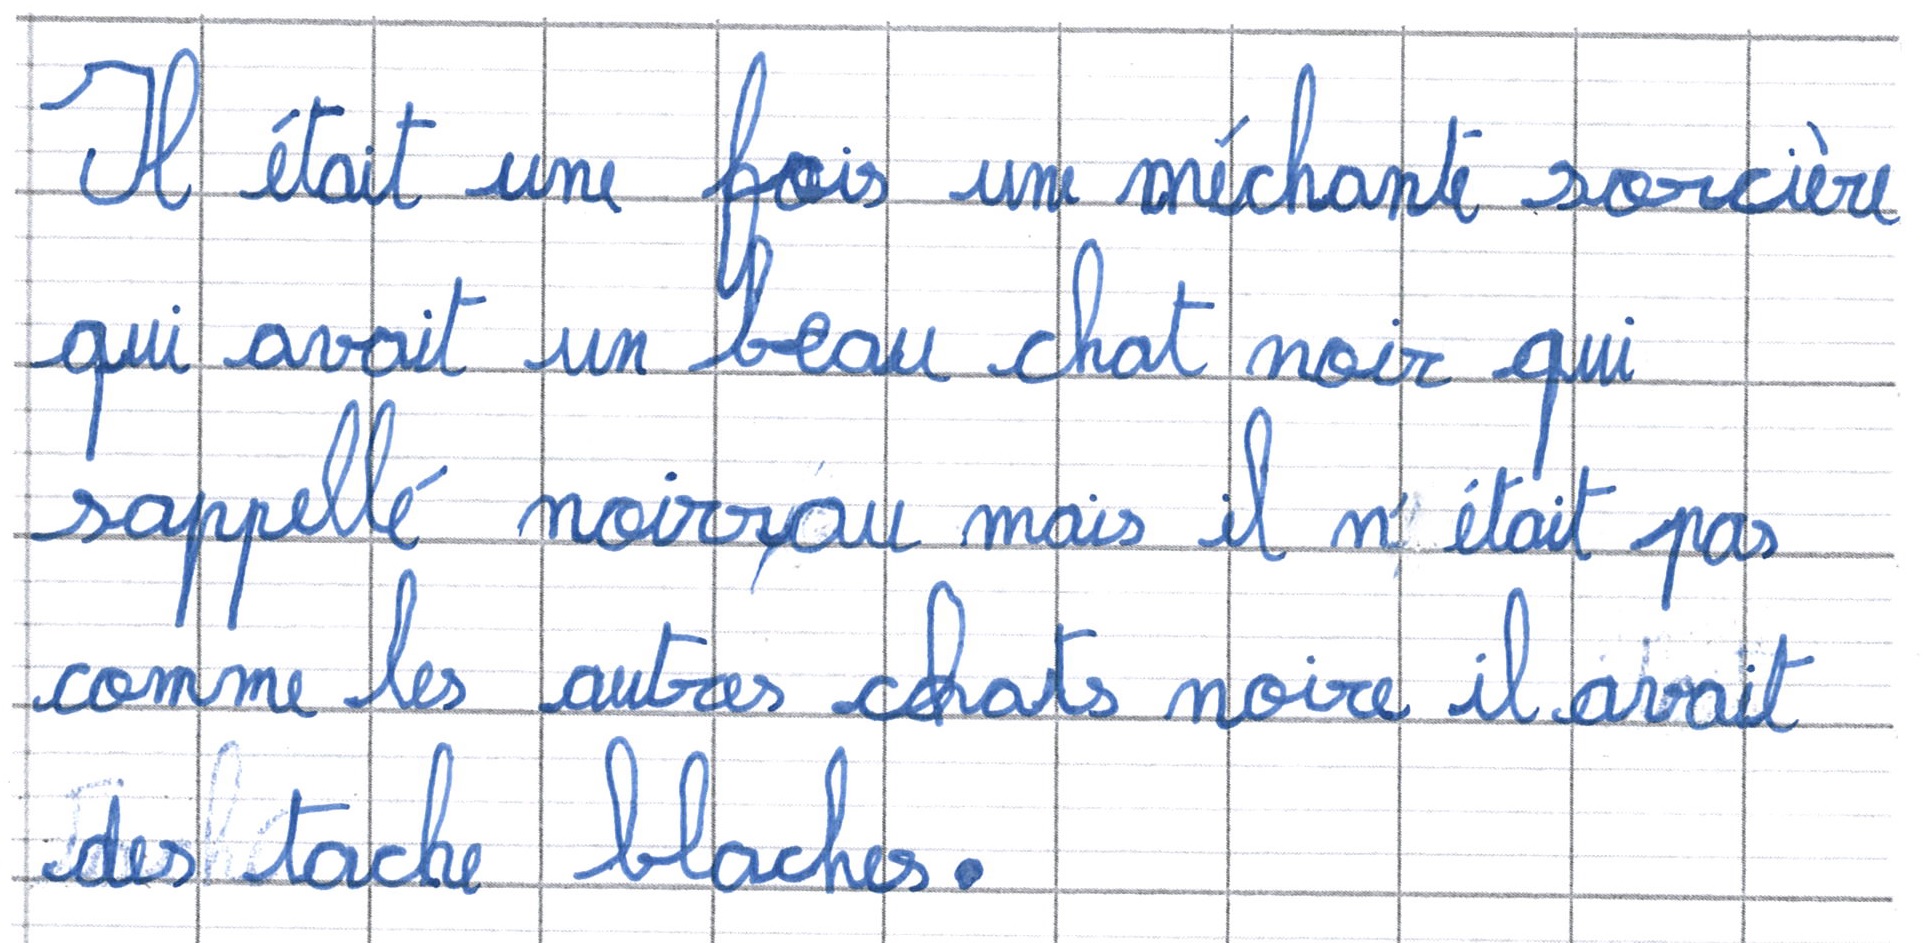 Il était une fois une méchante sorcière
qui avait un beau chat noir qui
sappellé noirrau mais il n'était pas
comme les autres chats noire il avait
des tache blaches.